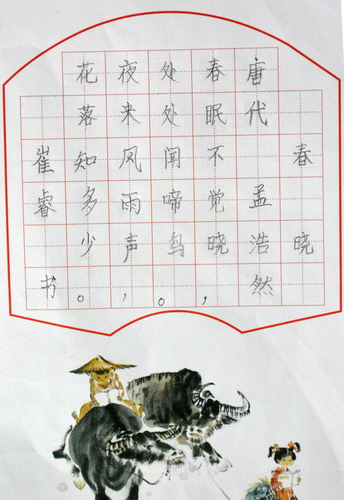 春晓
唐代孟浩然
春眠不觉晓，
处处闻啼鸟。
夜来风雨声，
花落知多少。
崔睿书